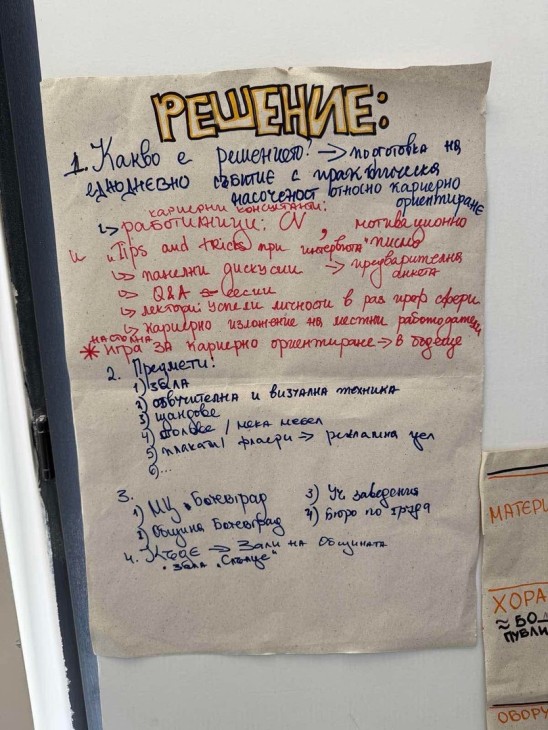 РЕШЕНИЕ:
1. Какво е решението? → подготовка на
еднодневно събитие с практическа
насоченост относно кариерно
ориентиране
кариерни консултанти:
↳ работилници: CV, мотивационно
писмо
и "Tips and tricks при интервюта"
↳ панелни дискусии → предварителна
анкета
↳ Q&A сесии
↳ лектори: успели личности в раз. проф. сфери
↳ кариерно изложение на местни работодатели
настолна
* игра за кариерно ориентиране → в бъдеще
2. Предмети:
1) зала
2) озвучителна и визуална техника
3) щандове
4) столове / мека мебел
5) плакати / флаери → рекламна цел
6)...
3.
1) МЦ Ботевград
2) Община Ботевград
3) Уч. заведения
4) Бюро по труда
4. Къде → Зали на Общината
• зала "Слънце"
МАТЕРИ
ХОРА
≈ 60
ПУБЛИ
ОБОРУ